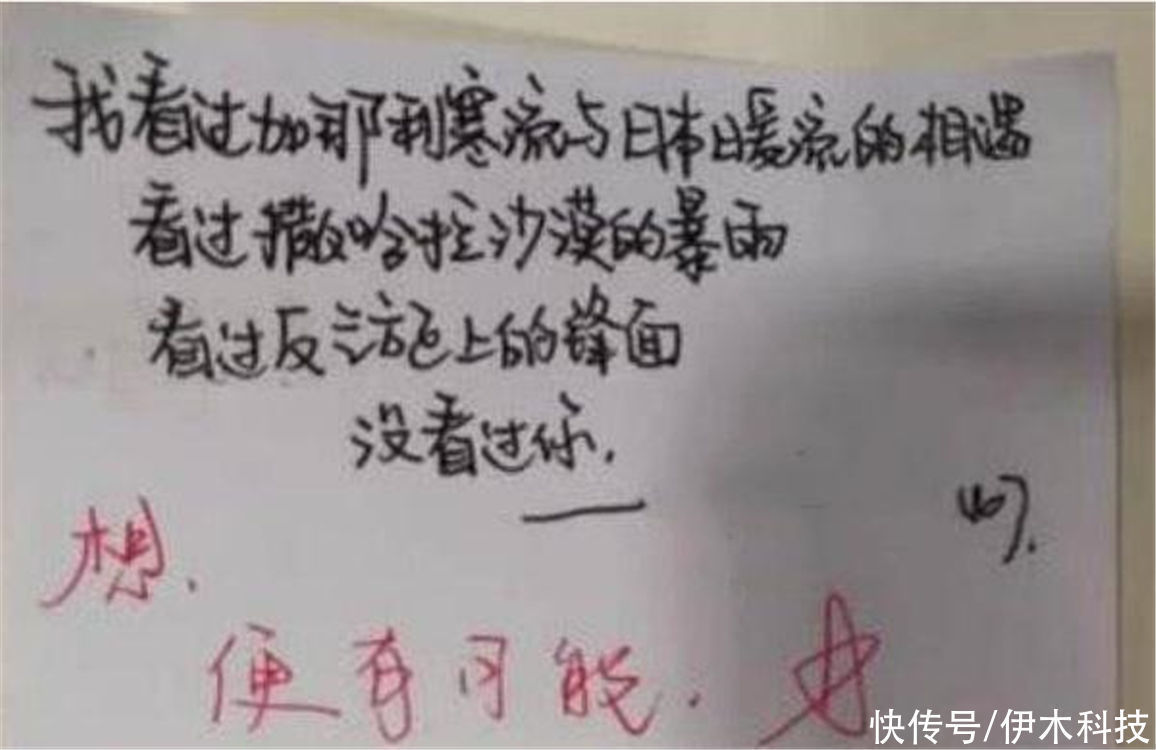 我看过加那利寒流与日本暖流的相遇
看过撒哈拉沙漠的暴雨
看过反气旋上的锋面
没看过你.
想.
便有可能.
快传号/伊木科技